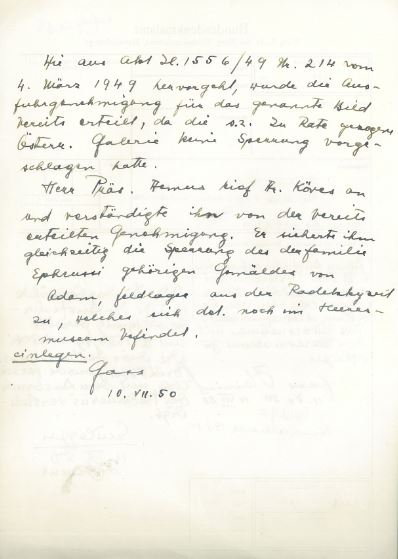 Wie aus Akt Zl. 1556/49 Nr. 214 vom
4. März 1949 hervorgeht, wurde die Aus-
fuhrgenehmigung für das genannte Bild
bereits erteilt, da die s.z. zu Rate gezogene
Österr. Galerie keine Sperrung vorge-
schlagen hatte.
Herr Präs. Demus rief Dr. Köves an
und verständigte ihn von der bereits
erteilten Genehmigung. Er sicherte ihm
gleichzeitig die Sperrung des der Familie
Ephrussi gehörigen Gemäldes von
Adam, Feldlager aus der Radetzkyzeit
zu, welches sich dzt. noch im Heeres-
museum befindet.
einlegen.
10. VII. 50